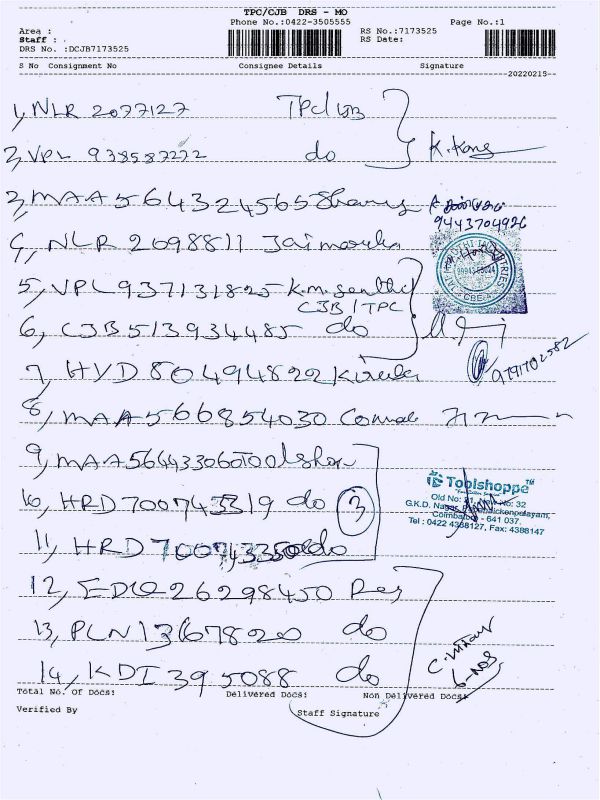 TPC/CJB DRS - MO
Phone No.:0422-3505555 Page No.:1
Area :
Staff : .
RS No.:7173525
RS Date:
DRS No. :DCJB7173525
S No Consignment No Consignee Details Signature
20220215
1, NLR 2077127 TPC/CJB
2, VPL 938587272 do K. Kong
3, MAA 564324565
9443704926
4, NLR 2098811
5, VPL 937131825 K.M. Senthil
CJB / TPC
6, CJB 513934485 do
7, HYD 80494822
9791702582
8, MAA 566854030
9, MAA 564433060 Toolshop
10, HRD 700743319 do 3
11, HRD 700743350 do
Toolshoppe
Old No: No: 32
G.K.D. Nagar,
Coimbatore - 641 037.
Tel : 0422 4388127, Fax: 4388147
12, EDQ 26298450 Reg
13, PLN 13678200 do
14, KDI 395088 do
6-NOS
Total No. Of Docs: Delivered Docs: Non Delivered Docs:
Verified By Staff Signature